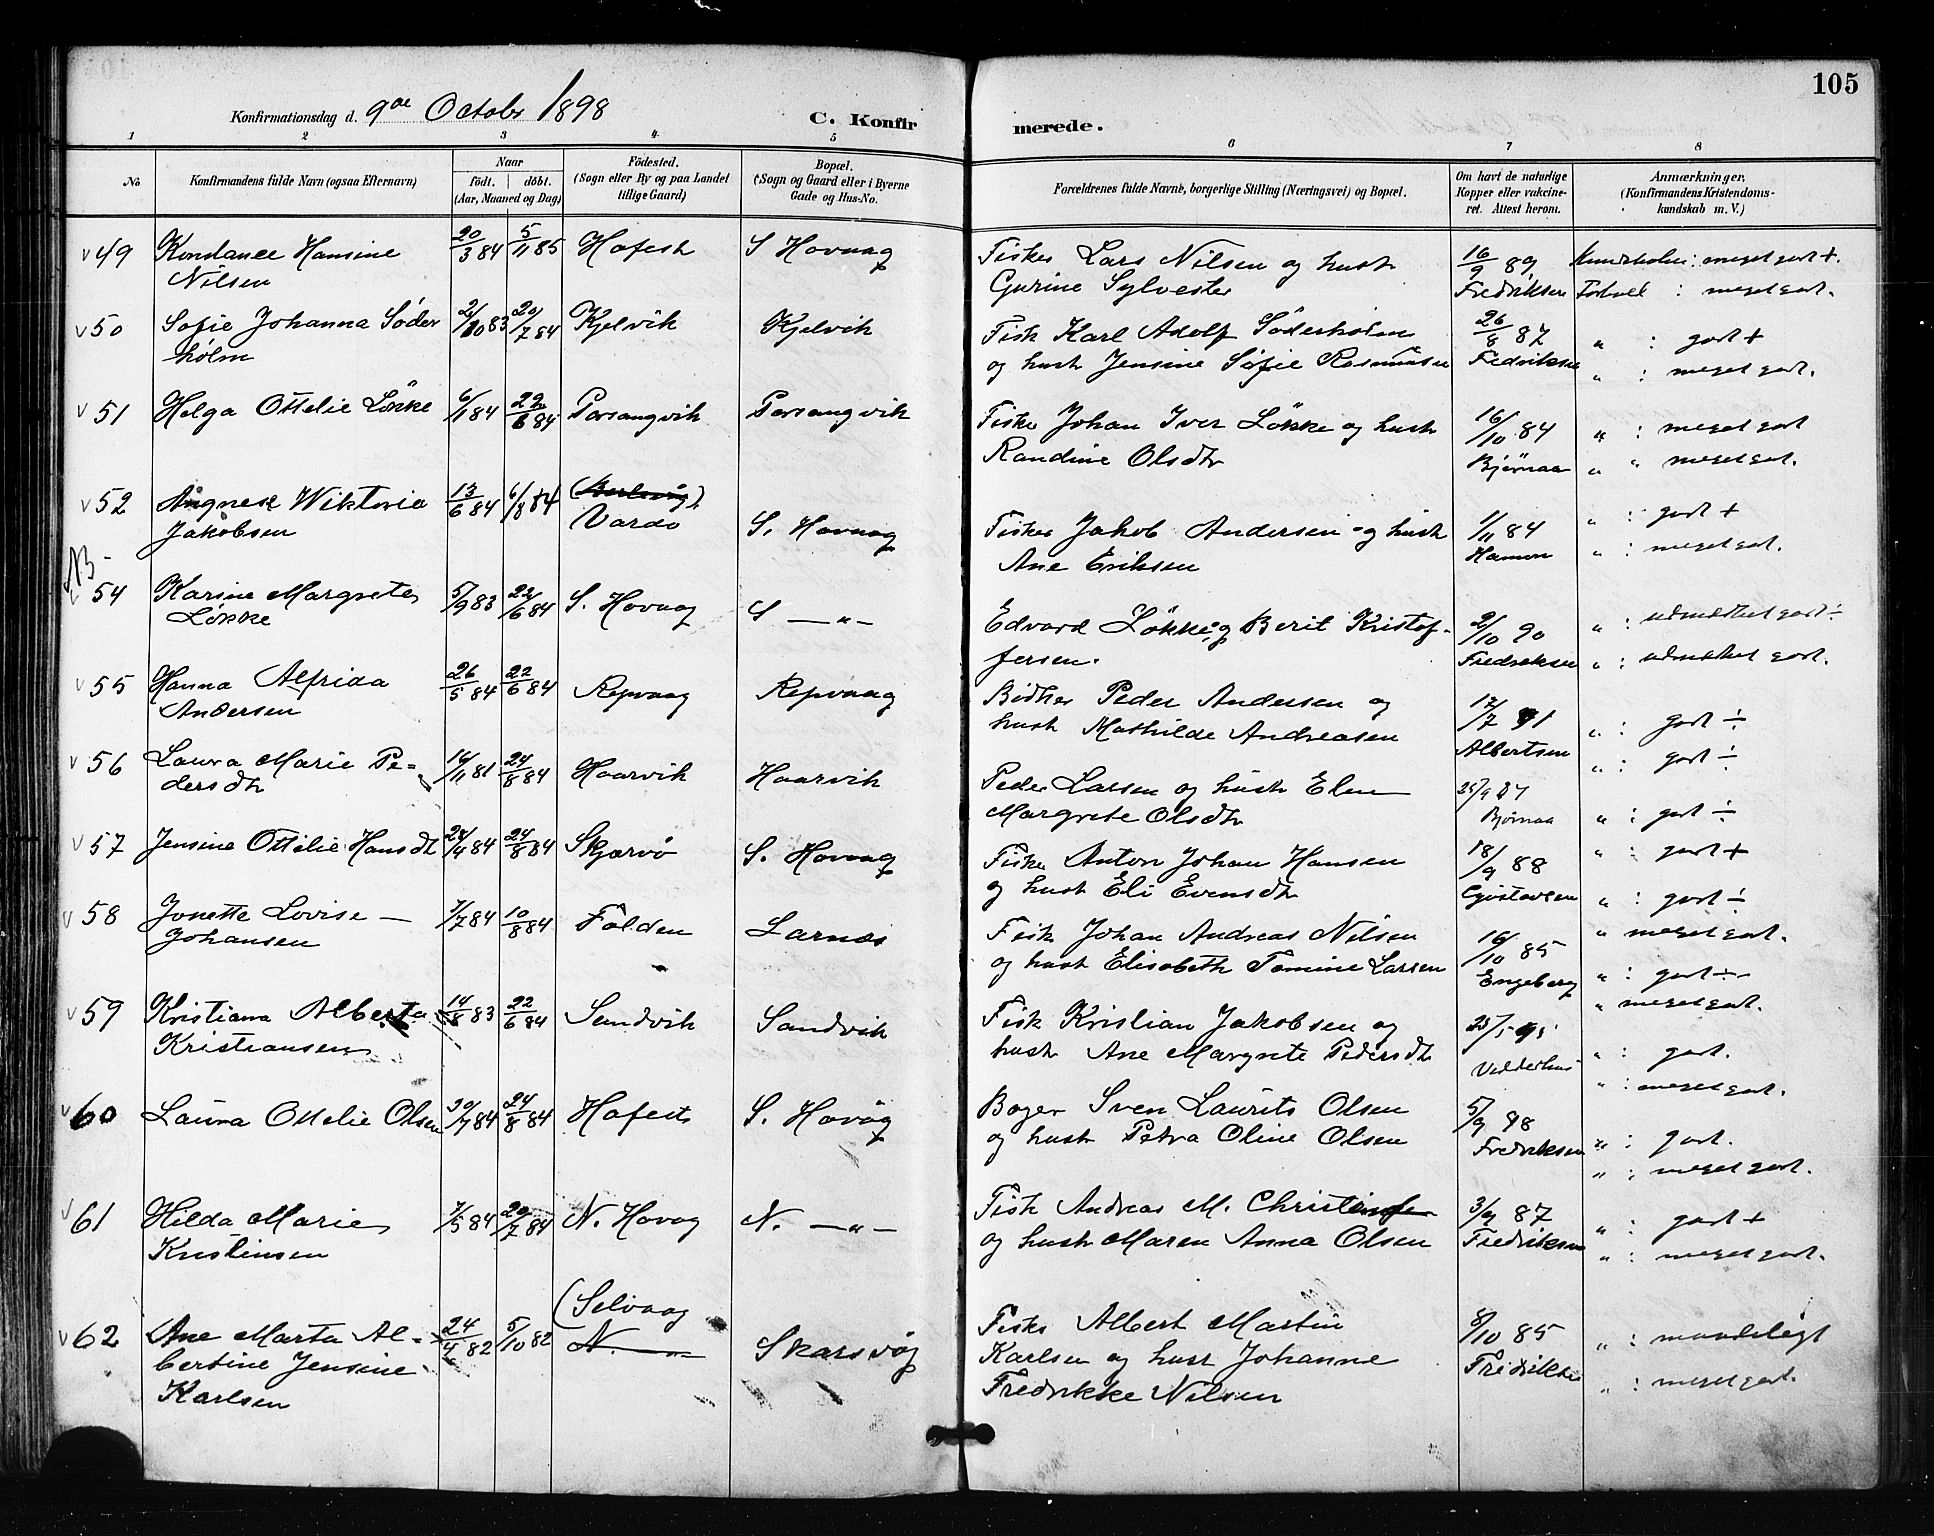 105
Konfirmationsdag d. 9de October 1898
C. Konfirmerede.
1 2 3 4 5 6 7 8
No
Konfirmandens fulde Navn (ogsaa Efternavn)
Naar
födt. döbt.
(Aar, Maaned og Dag)
Födested.
(Sogn eller By og paa Landet
tillige Gaard)
Bopæl.
(Sogn og Gaard eller i Byerne
Gade og Hus-No.
Forældrenes fulde Navne, borgerlige Stilling (Næringsvei) og Bopæl.
Om havt de naturlige
Kopper eller vakcine-
ret. Attest herom.
Anmærkninger.
(Konfirmandens Kristendoms-
kundskab m. V.)
v 49 Konstance Hansine 20/3 84 5/11 85 Hafest S Hovaag Fisker Lars Nilsen og hust 16/9 89 Kundskaber: meget godt +
Nilsen Gurine Sylvester Fredriksen Forhold : meget godt.
v 50 Sofie Johanna Söder 2/10 83 20/7 84 Kjelvik Kjelvik Fisk Karl Adolf Söderholm 26/8 87 " : godt +
holm og hust Jensine Sofie Rasmusen Fredriksen " : meget godt.
v 51 Helga Ottelie Lökke 6/1 84 22/6 84 Porsangvik Porsangvik Fisker Johan Iver Lökke og hust 16/10 84 " : meget godt
Randine Olsdtr Bjørnaa " " meget godt.
v 52 Angnese Wiktoria 13/6 84 6/8 84 (Berlevåg) " : godt +
Jakobsen Vardo S. Hovaag Fisker Jakob Andersen og hust 1/11 84 " : meget godt.
Ane Eriksen
NB -
v 54 Karine Margrete 5/9 83 22/6 84 S. Hovaag S — " — Edvard Lökke og Berit Kristof- 2/10 90 " : udmærket godt ÷
Lökke fersen. Fredriksen " : udmærket godt.
v 55 Hanna Alfrida 26/5 84 22/6 84 Repvaag Repvaag Bödker Peder Andersen og 17/7 91 " : godt ÷
Andersen hust Mathilde Andreasen Albertsen " : godt ÷
v 56 Laura Marie Pe- 14/11 81 24/8 84 Haarvik Haarvik Peder Larsen og hust Elen
dersdtr Margrete Olsdtr Bjørnaa " : godt ÷
v 57 Jensine Ottilie Hansdt 24/4 84 24/8 84 Skjærvö S. Hovaag Fisker Anton Johan Hansen 18/9 88 " : godt +
og hust Eli Evensdtr Gustavsen " : godt ÷
v 58 Jonette Lovise — 7/7 84 10/8 84 Folden Larnes Fisk Johan Andreas Nilsen 16/10 85 " meget godt.
Johansen og hust Elisabeth Tomine Larsen Engeberg " : godt ÷
v 59 Kristiana Alberta 14/8 83 22/6 84 Sandvik Sandvik Fisk Kristian Jakobsen og " meget godt.
Kristiansen hust Ane Margrete Pedersdtr " : godt.
v 60 Laura Ottelie Olsen 30/4 84 24/8 84 Hafest S. Hovåg Bager Sven Laurits Olsen 5/9 98 " : meget godt.
og hust Petra Oline Olsen Fredriksen " : godt.
" : meget godt.
v 61 Hilda Marie 7/5 84 20/7 84 N. Hovog N. — " — Fisk Andreas M. Christensen 3/9 87 " : godt +
Kristinsen og hust Maren Anna Olsen Fredriksen " : meget godt.
(Selvaag
v 62 Ane Marta Al- 24/4 82 5/10 82 N. — Skarsvåg Fisker Albert Martin 8/10 85 " : maadeligt
bertine Jensine Karlsen og hust Johanne Fredriksen " : meget godt.
Karlsen Fredrikke Nilsen